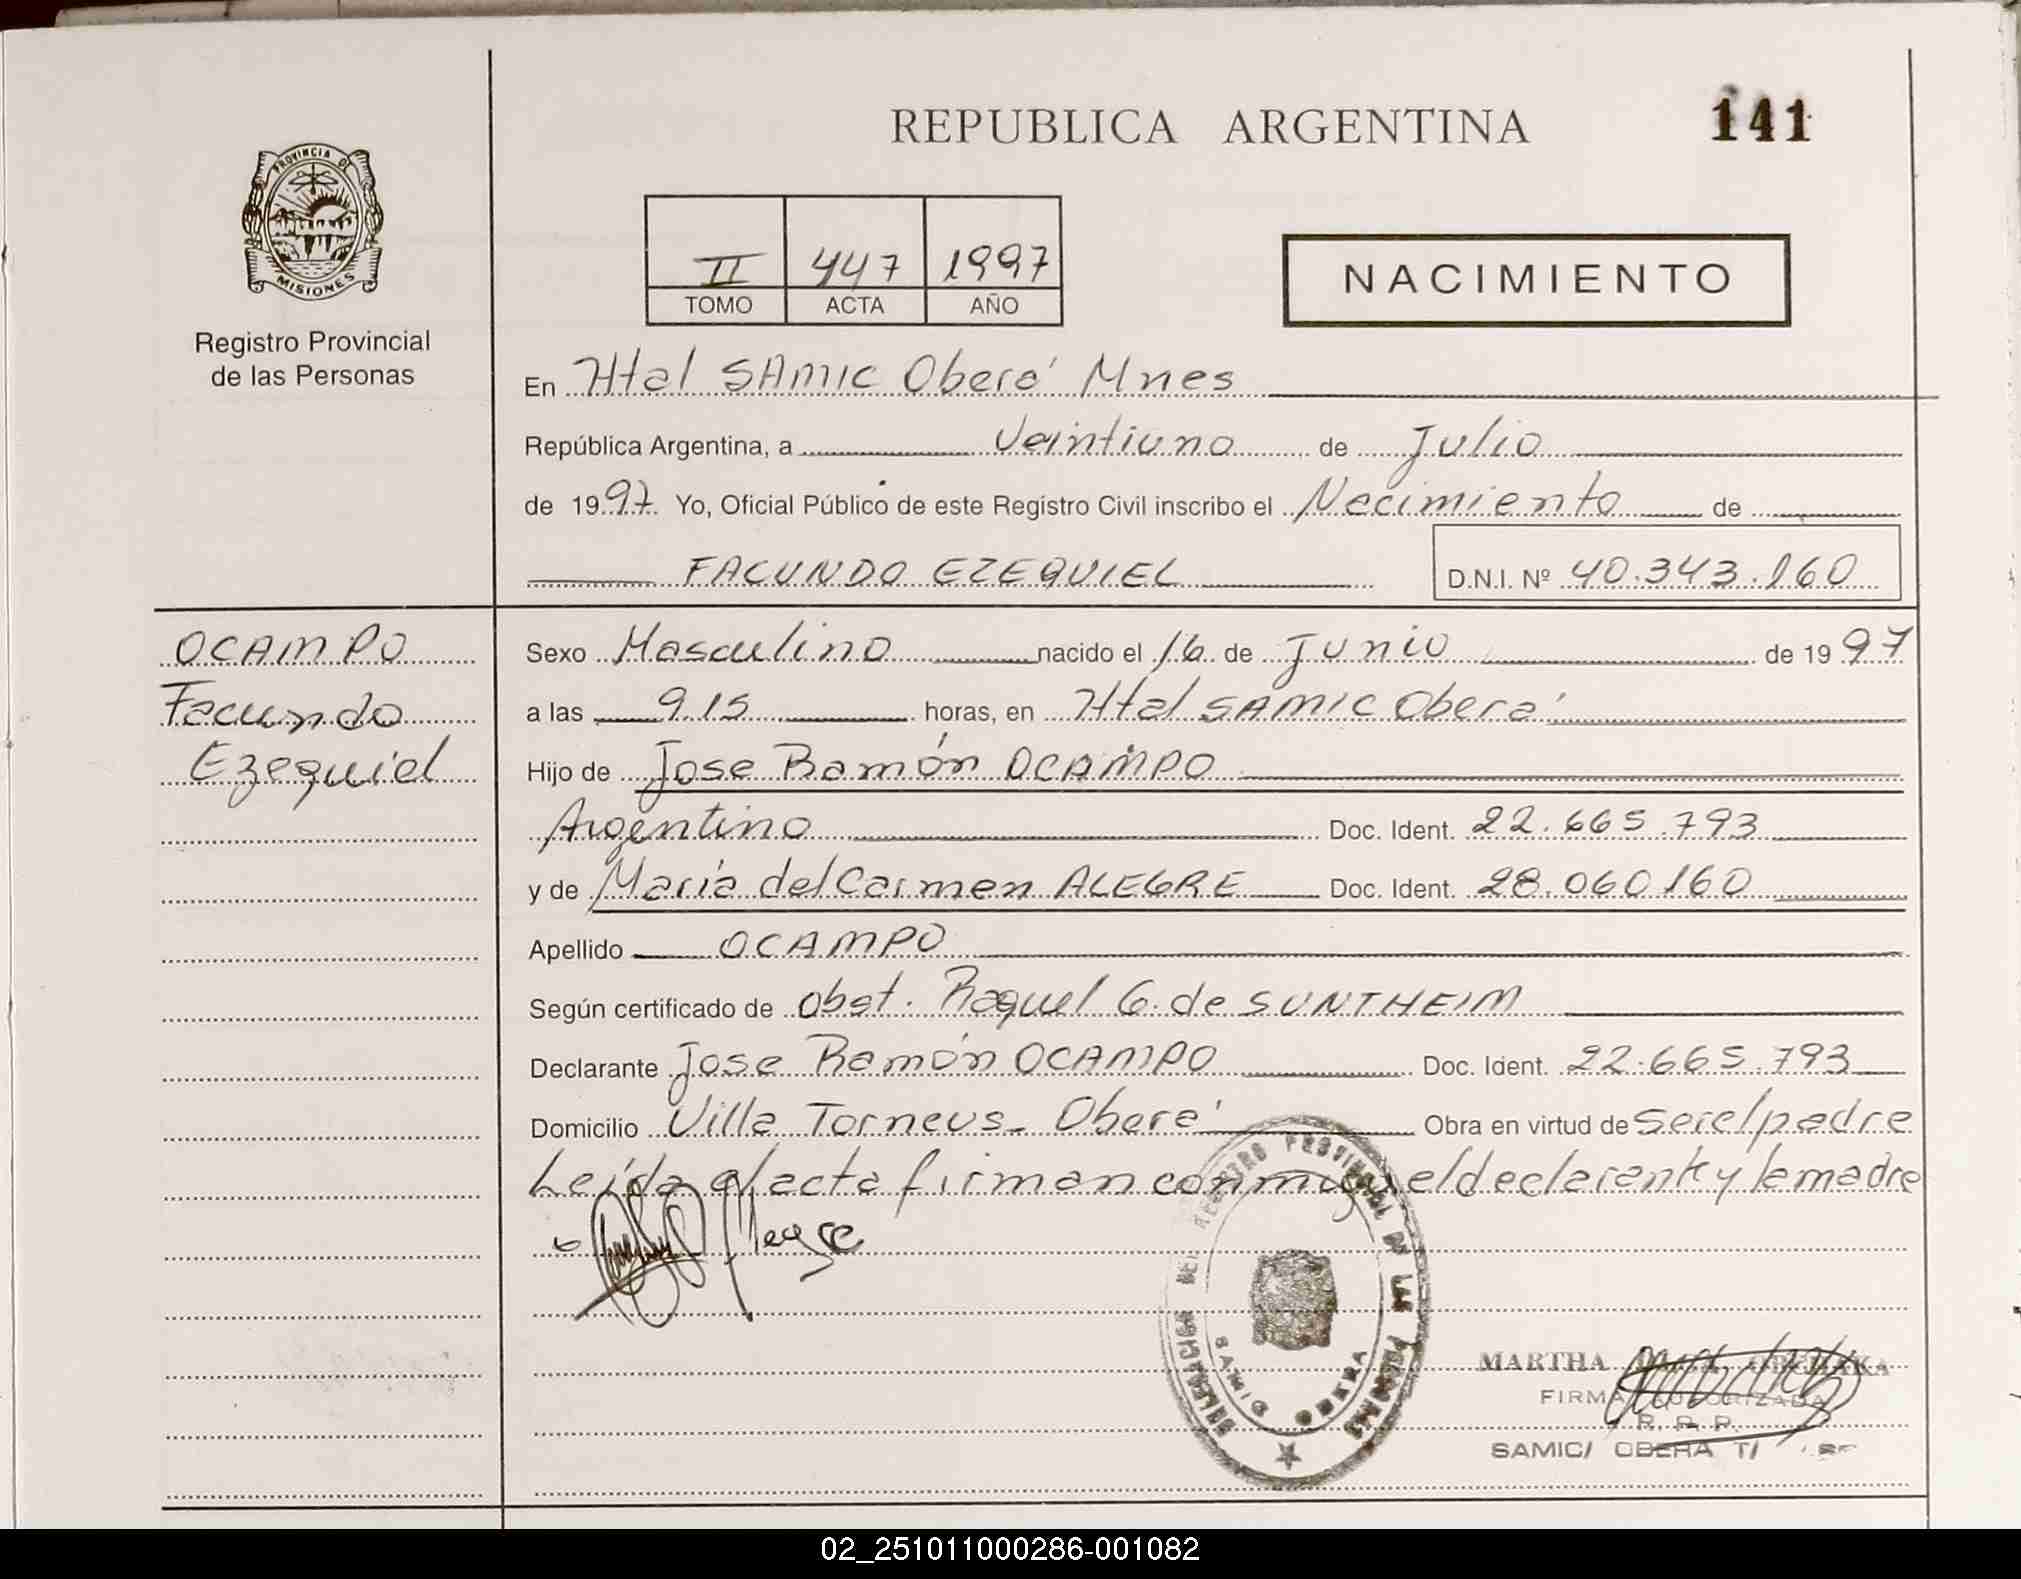 REPUBLICA ARGENTINA
141
PROVINCIA DE
MISIONES
Registro Provincial
de las Personas
II 447 1997
TOMO ACTA AÑO
NACIMIENTO
En Htal SAMIC Oberá Mnes
República Argentina, a Veintiuno de Julio
de 1997. Yo, Oficial Público de este Registro Civil inscribo el Nacimiento de
FACUNDO EZEQUIEL D.N.I. Nº 40.343.160
OCAMPO
Facundo
Ezequiel
Sexo Masculino nacido el 16 de Junio de 1997
a las 9.15 horas, en Htal SAMIC Oberá
Hijo de Jose Ramón OCAMPO
Argentino Doc. Ident. 22.665.793
y de María del Carmen ALEGRE Doc. Ident. 28.060.160
Apellido OCAMPO
Según certificado de Obst. Raquel G. de SUNTHEIM
Declarante Jose Ramón OCAMPO Doc. Ident. 22.665.793
Domicilio Villa Torneus - Oberá Obra en virtud de ser el padre
Leída el acta firman conmigo el declarante y la madre
DELEGACION DEL REGISTRO PROVINCIAL DE LAS PERSONAS
SAMIC OBERA
MARTHA
FIRMA AUTORIZADA
R. P. P.
SAMIC/ OBERA
02_251011000286-001082